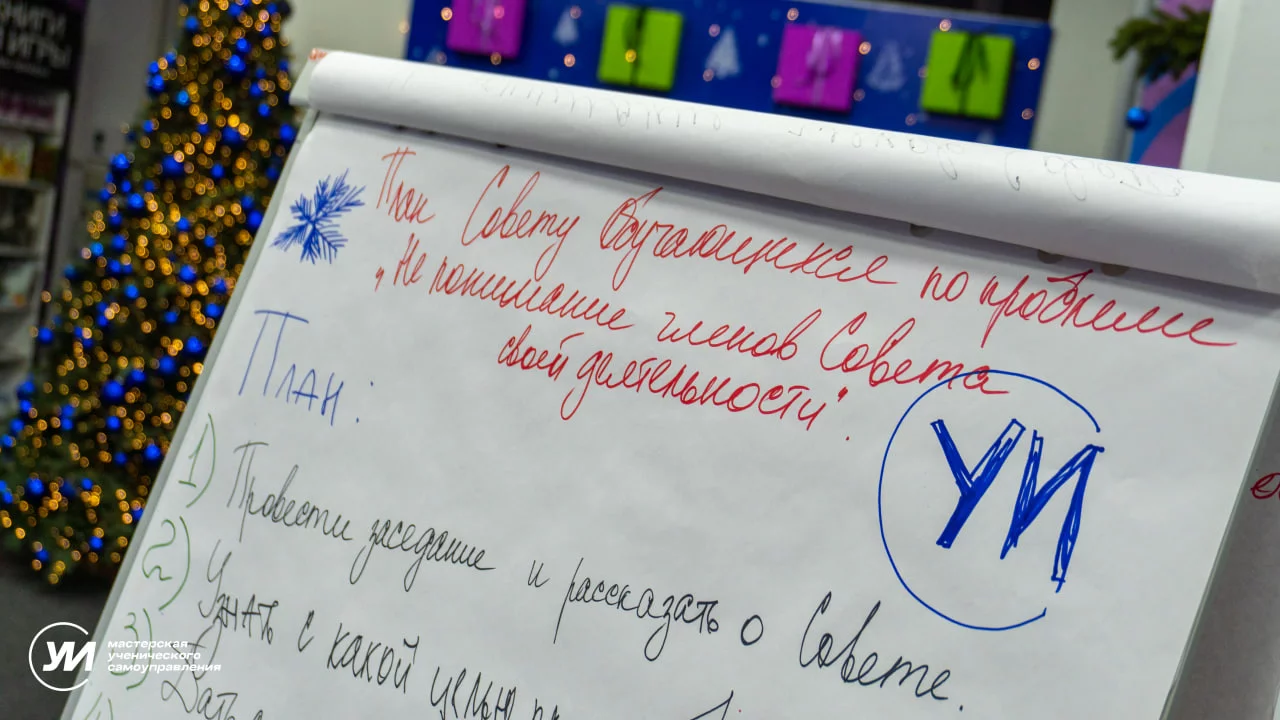 КНИГИ
План Совету Обучающихся по проблеме
„Не понимание членов Совета
своей деятельности".
План:
УИ
1) Провести заседание и рассказать о Совете.
2) Узнать с какой целью
3) Дать
4)
УИ
мастерская
ученического
самоуправления